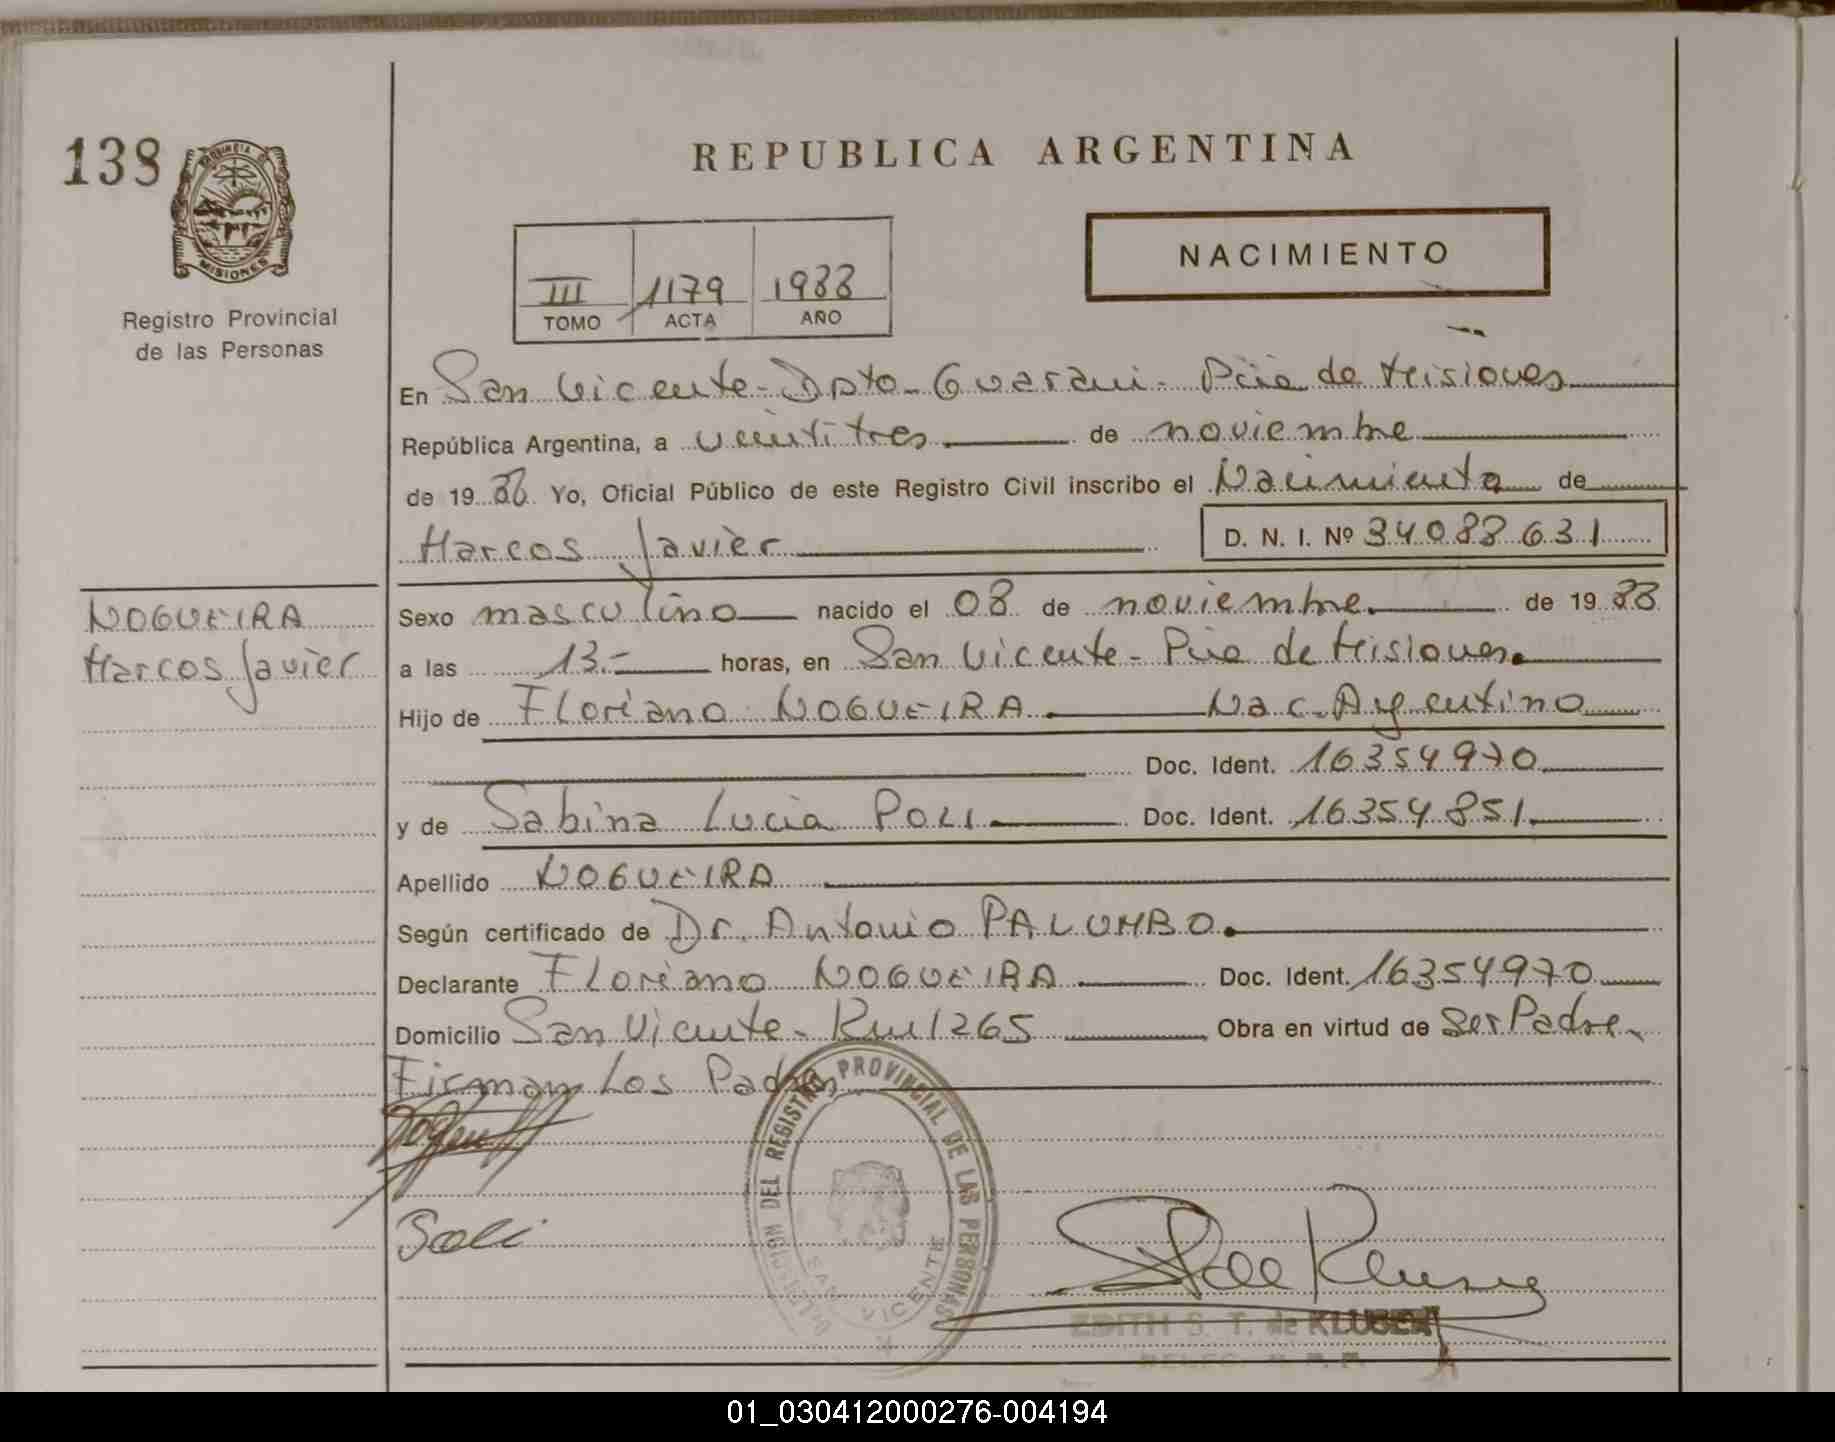 138
PROVINCIA DE
MISIONES
Registro Provincial
de las Personas
REPUBLICA ARGENTINA
III 1179 1988
TOMO ACTA AÑO
NACIMIENTO
En San Vicente - Dpto - Guarani - Pcia de Misiones
República Argentina, a veintitres de noviembre
de 19 88 Yo, Oficial Público de este Registro Civil inscribo el Nacimiento de
Marcos Javier D. N. I. Nº 34088631
NOGUEIRA
Marcos Javier
Sexo masculino nacido el 08 de noviembre de 19 88
a las 13.- horas, en San Vicente - Pcia de Misiones.
Hijo de Floriano NOGUEIRA Nac. Argentino
Doc. Ident. 16354970
y de Sabina Lucia POLI Doc. Ident. 16354851
Apellido NOGUEIRA
Según certificado de Dr. Antonio PALUMBO.
Declarante Floriano NOGUEIRA Doc. Ident. 16354970
Domicilio San Vicente - Km 1265 Obra en virtud de Ser Padre
Firman Los Padres
DELEGACION DEL REGISTRO PROVINCIAL DE LAS PERSONAS
SAN VICENTE
Poli
EDITH S. T. de KLUSENER
DELEG. R. P. P.
01_030412000276-004194